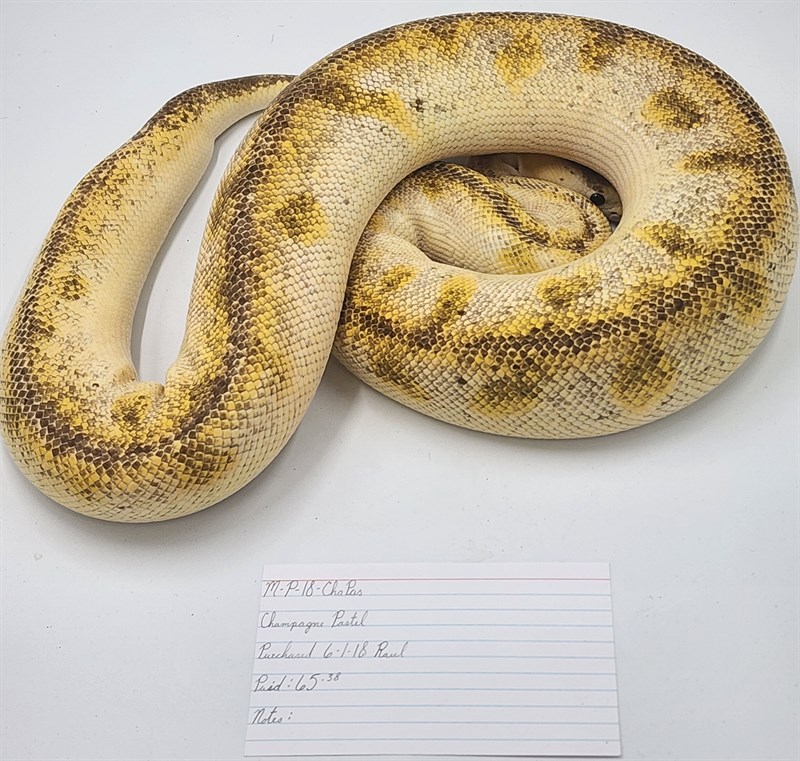 M-P-18-ChaPas
Champagne Pastel
Purchased 6-1-18 Raul
Paid: 65.38
Notes: